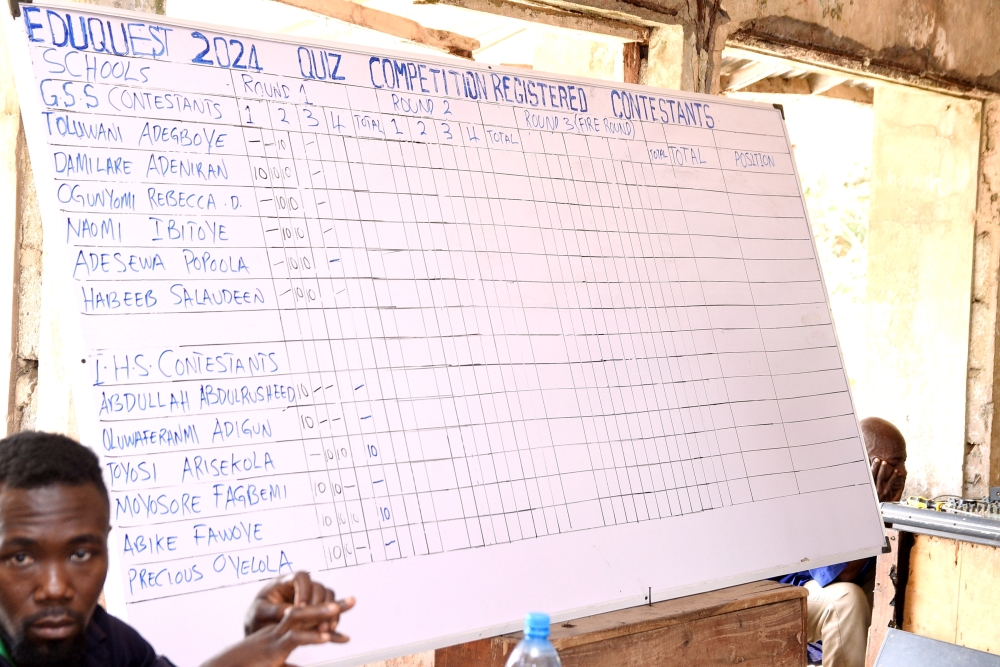 EDUQUEST 2024 QUIZ COMPETITION REGISTERED CONTESTANTS
SCHOOLS ROUND 1 ROUND 2 ROUND 3 (FIRE ROUND)
G.S.S CONTESTANTS 1 2 3 4 TOTAL 1 2 3 4 TOTAL TOTAL TOTAL POSITION
TOLUWANI ADEGBOYE - - 10 -
DAMILARE ADENIRAN 10 10 10 -
OGUNYOMI REBECCA .D. - 10 10 -
NAOMI IBITOYE - 10 10 -
ADESEWA POPOOLA - 10 10 -
HABEEB SALAUDEEN - 10 10 -
I.H.S. CONTESTANTS
ABDULLAH ABDULRUSHEED 10 - - -
OLUWAFERANMI ADIGUN 10 - - -
TOYOSI ARISEKOLA - 10 10 10
MOYOSORE FAGBEMI 10 10 - -
ABIKE FAWOYE 10 10 10 10
PRECIOUS OYELOLA 10 10 - -